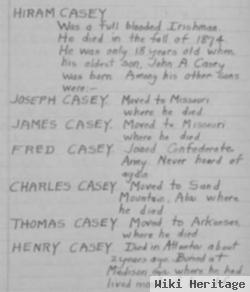 HIRAM CASEY
Was a full blooded Irishman.
He died in the fall of 1874.
He was only 18 years old when
his oldest son, John A Casey
was born. Among his other sons
were:-
JOSEPH CASEY. Moved to Missouri
where he died.
JAMES CASEY. Moved to Missouri
where he died
FRED CASEY. Joined Confederate
Army. Never heard of
again
CHARLES CASEY Moved to Sand
Mountain, Ala. where
he died.
THOMAS CASEY. Moved to Arkansas
where he died.
HENRY CASEY Died in Atlanta about
2 years ago. Buried at
Madison, Ga. where he had
lived
Wiki Heritage